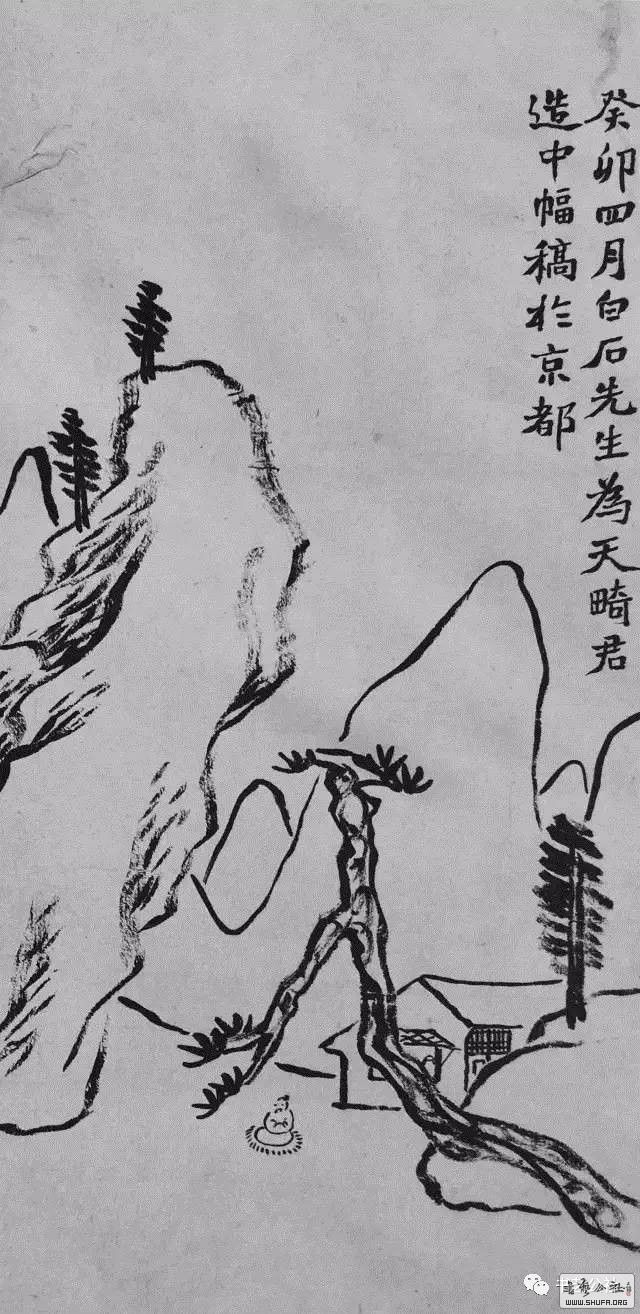 癸卯四月白石先生為天畸君
造中幅稿於京都
WWW.SHUFA.ORG